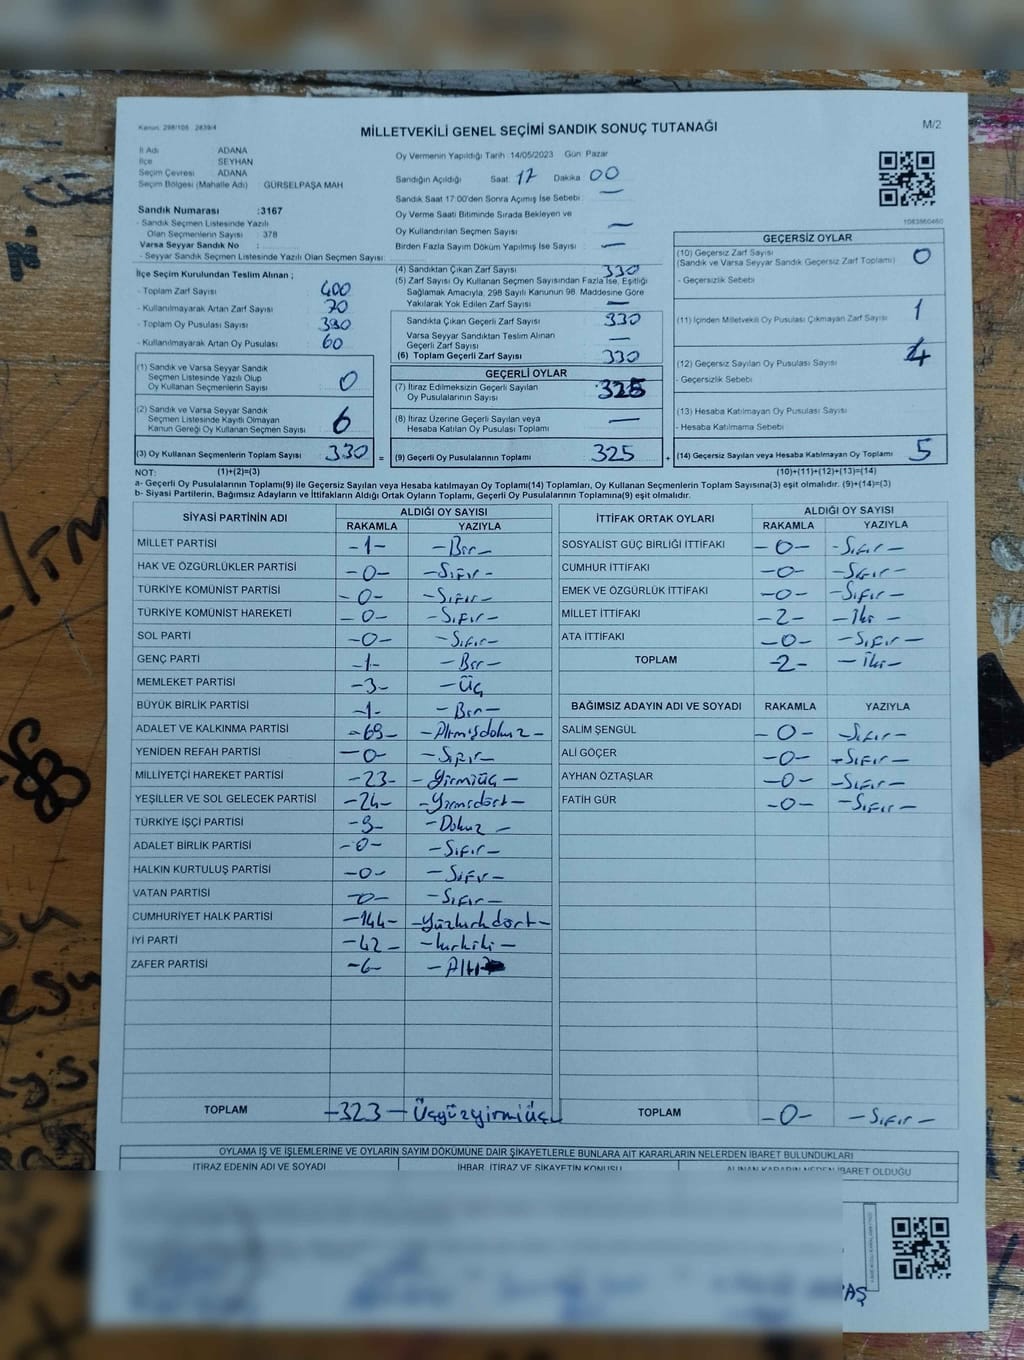 Kanun: 298/105 2839/4
MİLLETVEKİLİ GENEL SEÇİMİ SANDIK SONUÇ TUTANAĞI
M/2
İl Adı ADANA
İlçe SEYHAN
Seçim Çevresi ADANA
Seçim Bölgesi (Mahalle Adı) GÜRSELPAŞA MAH
Oy Vermenin Yapıldığı Tarih 14/05/2023 Gün Pazar
Sandığın Açıldığı Saat: 17 Dakika: 00
Sandık Saat 17:00'den Sonra Açımış İse Sebebi —
Oy Verme Saati Bitiminde Sırada Bekleyen ve
Oy Kullandırılan Seçmen Sayısı —
Birden Fazla Sayım Döküm Yapılmış İse Sayısı —
Sandık Numarası :3167
- Sandık Seçmen Listesinde Yazılı
Olan Seçmenlerin Sayısı : 378
Varsa Seyyar Sandık No :
- Seyyar Sandık Seçmen Listesinde Yazılı Olan Seçmen Sayısı:
1083860460
İlçe Seçim Kurulundan Teslim Alınan ;
- Toplam Zarf Sayısı 400
- Kullanılmayarak Artan Zarf Sayısı 70
- Toplam Oy Pusulası Sayısı 390
- Kullanılmayarak Artan Oy Pusulası 60
(1) Sandık ve Varsa Seyyar Sandık
Seçmen Listesinde Yazılı Olup
Oy Kullanan Seçmenlerin Sayısı 0
(2) Sandık ve Varsa Seyyar Sandık
Seçmen Listesinde Kayıtlı Olmayan
Kanun Gereği Oy Kullanan Seçmen Sayısı 6
(3) Oy Kullanan Seçmenlerin Toplam Sayısı 330 =
(4) Sandıktan Çıkan Zarf Sayısı 330
(5) Zarf Sayısı Oy Kullanan Seçmen Sayısından Fazla İse, Eşitliği
Sağlamak Amacıyla, 298 Sayılı Kanunun 98. Maddesine Göre
Yakılarak Yok Edilen Zarf Sayısı —
Sandıkta Çıkan Geçerli Zarf Sayısı 330
Varsa Seyyar Sandıktan Teslim Alınan
Geçerli Zarf Sayısı —
(6) Toplam Geçerli Zarf Sayısı 330
GEÇERLİ OYLAR
(7) İtiraz Edilmeksizin Geçerli Sayılan
Oy Pusulalarının Sayısı 325
(8) İtiraz Üzerine Geçerli Sayılan veya
Hesaba Katılan Oy Pusulası Toplamı —
(9) Geçerli Oy Pusulalarının Toplamı 325 +
GEÇERSİZ OYLAR
(10) Geçersiz Zarf Sayısı
(Sandık ve Varsa Seyyar Sandık Geçersiz Zarf Toplamı) 0
- Geçersizlik Sebebi
(11) İçinden Milletvekili Oy Pusulası Çıkmayan Zarf Sayısı 1
(12) Geçersiz Sayılan Oy Pusulası Sayısı 4
- Geçersizlik Sebebi
(13) Hesaba Katılmayan Oy Pusulası Sayısı
- Hesaba Katılmama Sebebi
(14) Geçersiz Sayılan veya Hesaba Katılmayan Oy Toplamı 5
NOT: (1)+(2)=(3) (10)+(11)+(12)+(13)=(14)
a- Geçerli Oy Pusulalarının Toplamı(9) ile Geçersiz Sayılan veya Hesaba katılmayan Oy Toplamı(14) Toplamları, Oy Kullanan Seçmenlerin Toplam Sayısına(3) eşit olmalıdır. (9)+(14)=(3)
b- Siyasi Partilerin, Bağımsız Adayların ve İttifakların Aldığı Ortak Oyların Toplamı, Geçerli Oy Pusulalarının Toplamına(9) eşit olmalıdır.
SİYASİ PARTİNİN ADI ALDIĞI OY SAYISI
RAKAMLA YAZIYLA
MİLLET PARTİSİ -1- -Bir-
HAK VE ÖZGÜRLÜKLER PARTİSİ -0- -Sıfır-
TÜRKİYE KOMÜNİST PARTİSİ -0- -Sıfır-
TÜRKİYE KOMÜNİST HAREKETİ -0- -Sıfır-
SOL PARTİ -0- -Sıfır-
GENÇ PARTİ -1- -Bir-
MEMLEKET PARTİSİ -3- -Üç
BÜYÜK BİRLİK PARTİSİ -1- -Bir-
ADALET VE KALKINMA PARTİSİ -69- -Altmışdokuz-
YENİDEN REFAH PARTİSİ -0- -Sıfır-
MİLLİYETÇİ HAREKET PARTİSİ -23- -Yirmiüç-
YEŞİLLER VE SOL GELECEK PARTİSİ -24- -Yirmidört-
TÜRKİYE İŞÇİ PARTİSİ -9- -Dokuz-
ADALET BİRLİK PARTİSİ -0- -Sıfır-
HALKIN KURTULUŞ PARTİSİ -0- -Sıfır-
VATAN PARTİSİ -0- -Sıfır-
CUMHURİYET HALK PARTİSİ -144- -Yüzkırkdört-
İYİ PARTİ -42- -kırkiki-
ZAFER PARTİSİ -6- -Altı
TOPLAM -323- Üçyüzyirmiüç
İTTİFAK ORTAK OYLARI ALDIĞI OY SAYISI
RAKAMLA YAZIYLA
SOSYALİST GÜÇ BİRLİĞİ İTTİFAKI -0- -Sıfır-
CUMHUR İTTİFAKI -0- -Sıfır-
EMEK VE ÖZGÜRLÜK İTTİFAKI -0- -Sıfır-
MİLLET İTTİFAKI -2- -İki-
ATA İTTİFAKI -0- -Sıfır-
TOPLAM -2- -İki-
BAĞIMSIZ ADAYIN ADI VE SOYADI RAKAMLA YAZIYLA
SALİM ŞENGÜL -0- -Sıfır-
ALİ GÖÇER -0- -Sıfır-
AYHAN ÖZTAŞLAR -0- -Sıfır-
FATİH GÜR -0- -Sıfır-
TOPLAM -0- -Sıfır-
OYLAMA İŞ VE İŞLEMLERİNE VE OYLARIN SAYIM DÖKÜMÜNE DAİR ŞİKAYETLERLE BUNLARA AİT KARARLARIN NELERDEN İBARET BULUNDUKLARI
İTİRAZ EDENİN ADI VE SOYADI İHBAR, İTİRAZ VE ŞİKAYETİN KONUSU ALINAN KARARIN NEDEN İBARET OLDUĞU